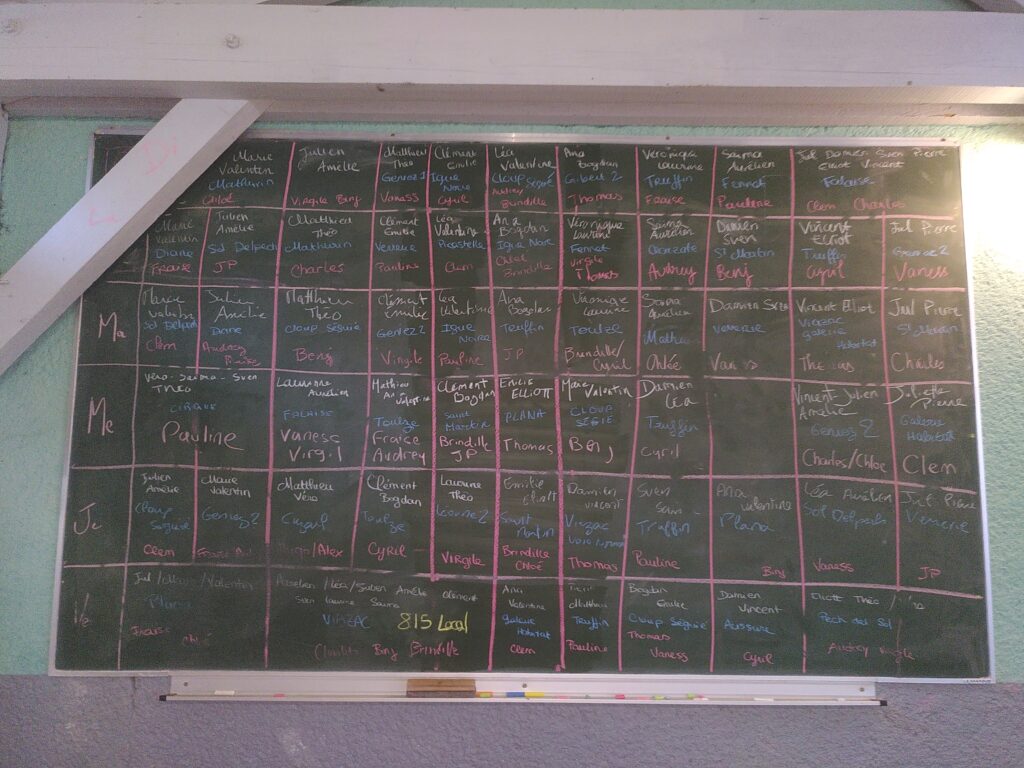 Di
Marie
Valentin
Mathurin
Chloé
Julien
Amélie
Virgile Benj
Matthieu
Théo
Geniez 1
Vaness
Clément
Emilie
Igue
Noire
Cyril
Léa
Valentine
Cloup Ségué
Audrey
Brindille
Ana
Bogdan
Gibert 2
Thomas
Véronique
Laurianne
Truffin
Fraise
Saïma
Aurélien
Fennet
Pauline
Jul Damien Sven Pierre
Eliott Vincent
Falaise
Clem Charles
Marie
Valentin
Diane
Fraise
Julien
Amélie
Sol Delpech
JP
Matthieu
Théo
Mathurin
Charles
Clément
Emilie
Verrerie
Pauline
Léa
Valentine
Picastelle
Clem
Ana
Bogdan
Igue Nore
Chloé
Brindille
Véronique
Laurianne
Fennet
Virgile
Thomas
Saïma
Aurélien
Audrey
Damien
Sven
St Martin
Benj
Vincent
Elliot
Truffin
Cyril
Jul Pierre
Geniez 2
Vaness
Ma
Marie
Valentin
Sol Delpech
Clem
Julien
Amélie
Diane
Audrey
Matthieu
Théo
Cloup Séguié
Benj
Clément
Emilie
Geniez 2
Virgile
Léa
Valentine
Igue
Noire
Pauline
Ana
Bogdan
Truffin
JP
Véronique
Laurianne
Toulze
Brindille/
Cyril
Saïma
Aurélien
Chloé
Damien Sven
Verrerie
Vincent Elliot
Virazac
galerie
Habitat
Thomas
Jul Pierre
St Martin
Charles
Me
Véro - Saïma - Sven
Théo
CIRQUE
Pauline
Laurianne
Aurélien
FALAISE
Vaness
Virgil
Mathieu
Valentine
Toulze
Fraise
Audrey
Clément
Bogdan
Saint
Martin
Brindille
JP
Emilie
Elliott
PLANA
Thomas
Marie Valentin
CLOUP
SÉGIÉ
BENJ
Damien
Léa
Truffin
Cyril
Vincent Julien
Amélie
Geniez 2
Charles/Chloé
Juliette
Pierre
Galerie
Habitat
Clem
Je
Julien
Amélie
Cloup
Seguié
Clem
Marie
Valentin
Geniez 2
Matthieu
Véro
/Alex
Clément
Bogdan
Toulze
Cyril
Laurianne
Théo
Virgile
Emilie
Eliott
Saint
Martin
Brindille
Chloé
Damien
Vincent
Virazac
Thomas
Sven
Saïm
Truffin
Pauline
Ana
Valentine
Plana
Benj
Léa Aurélien
Sol Delpech
Vaness
Jul Pierre
Verrerie
JP
1/2
Jul / Marie / Valentin
Plana
Fraise Chloé
Aurélien / Léa / Julien Amélie Clément
Sven Laurianne Saïma
VIRAZAC 815 Local
Charles Benj Brindille
Ana
Valentine
Galerie
Habitat
Clem
Pierre
Matthieu
Truffin
Pauline
Bogdan
Emilie
Cloup Séguié
Thomas
Vaness
Damien
Vincent
Aussure
Cyril
Eliott Théo / Véro
Pech del Sol
Audrey Virgile